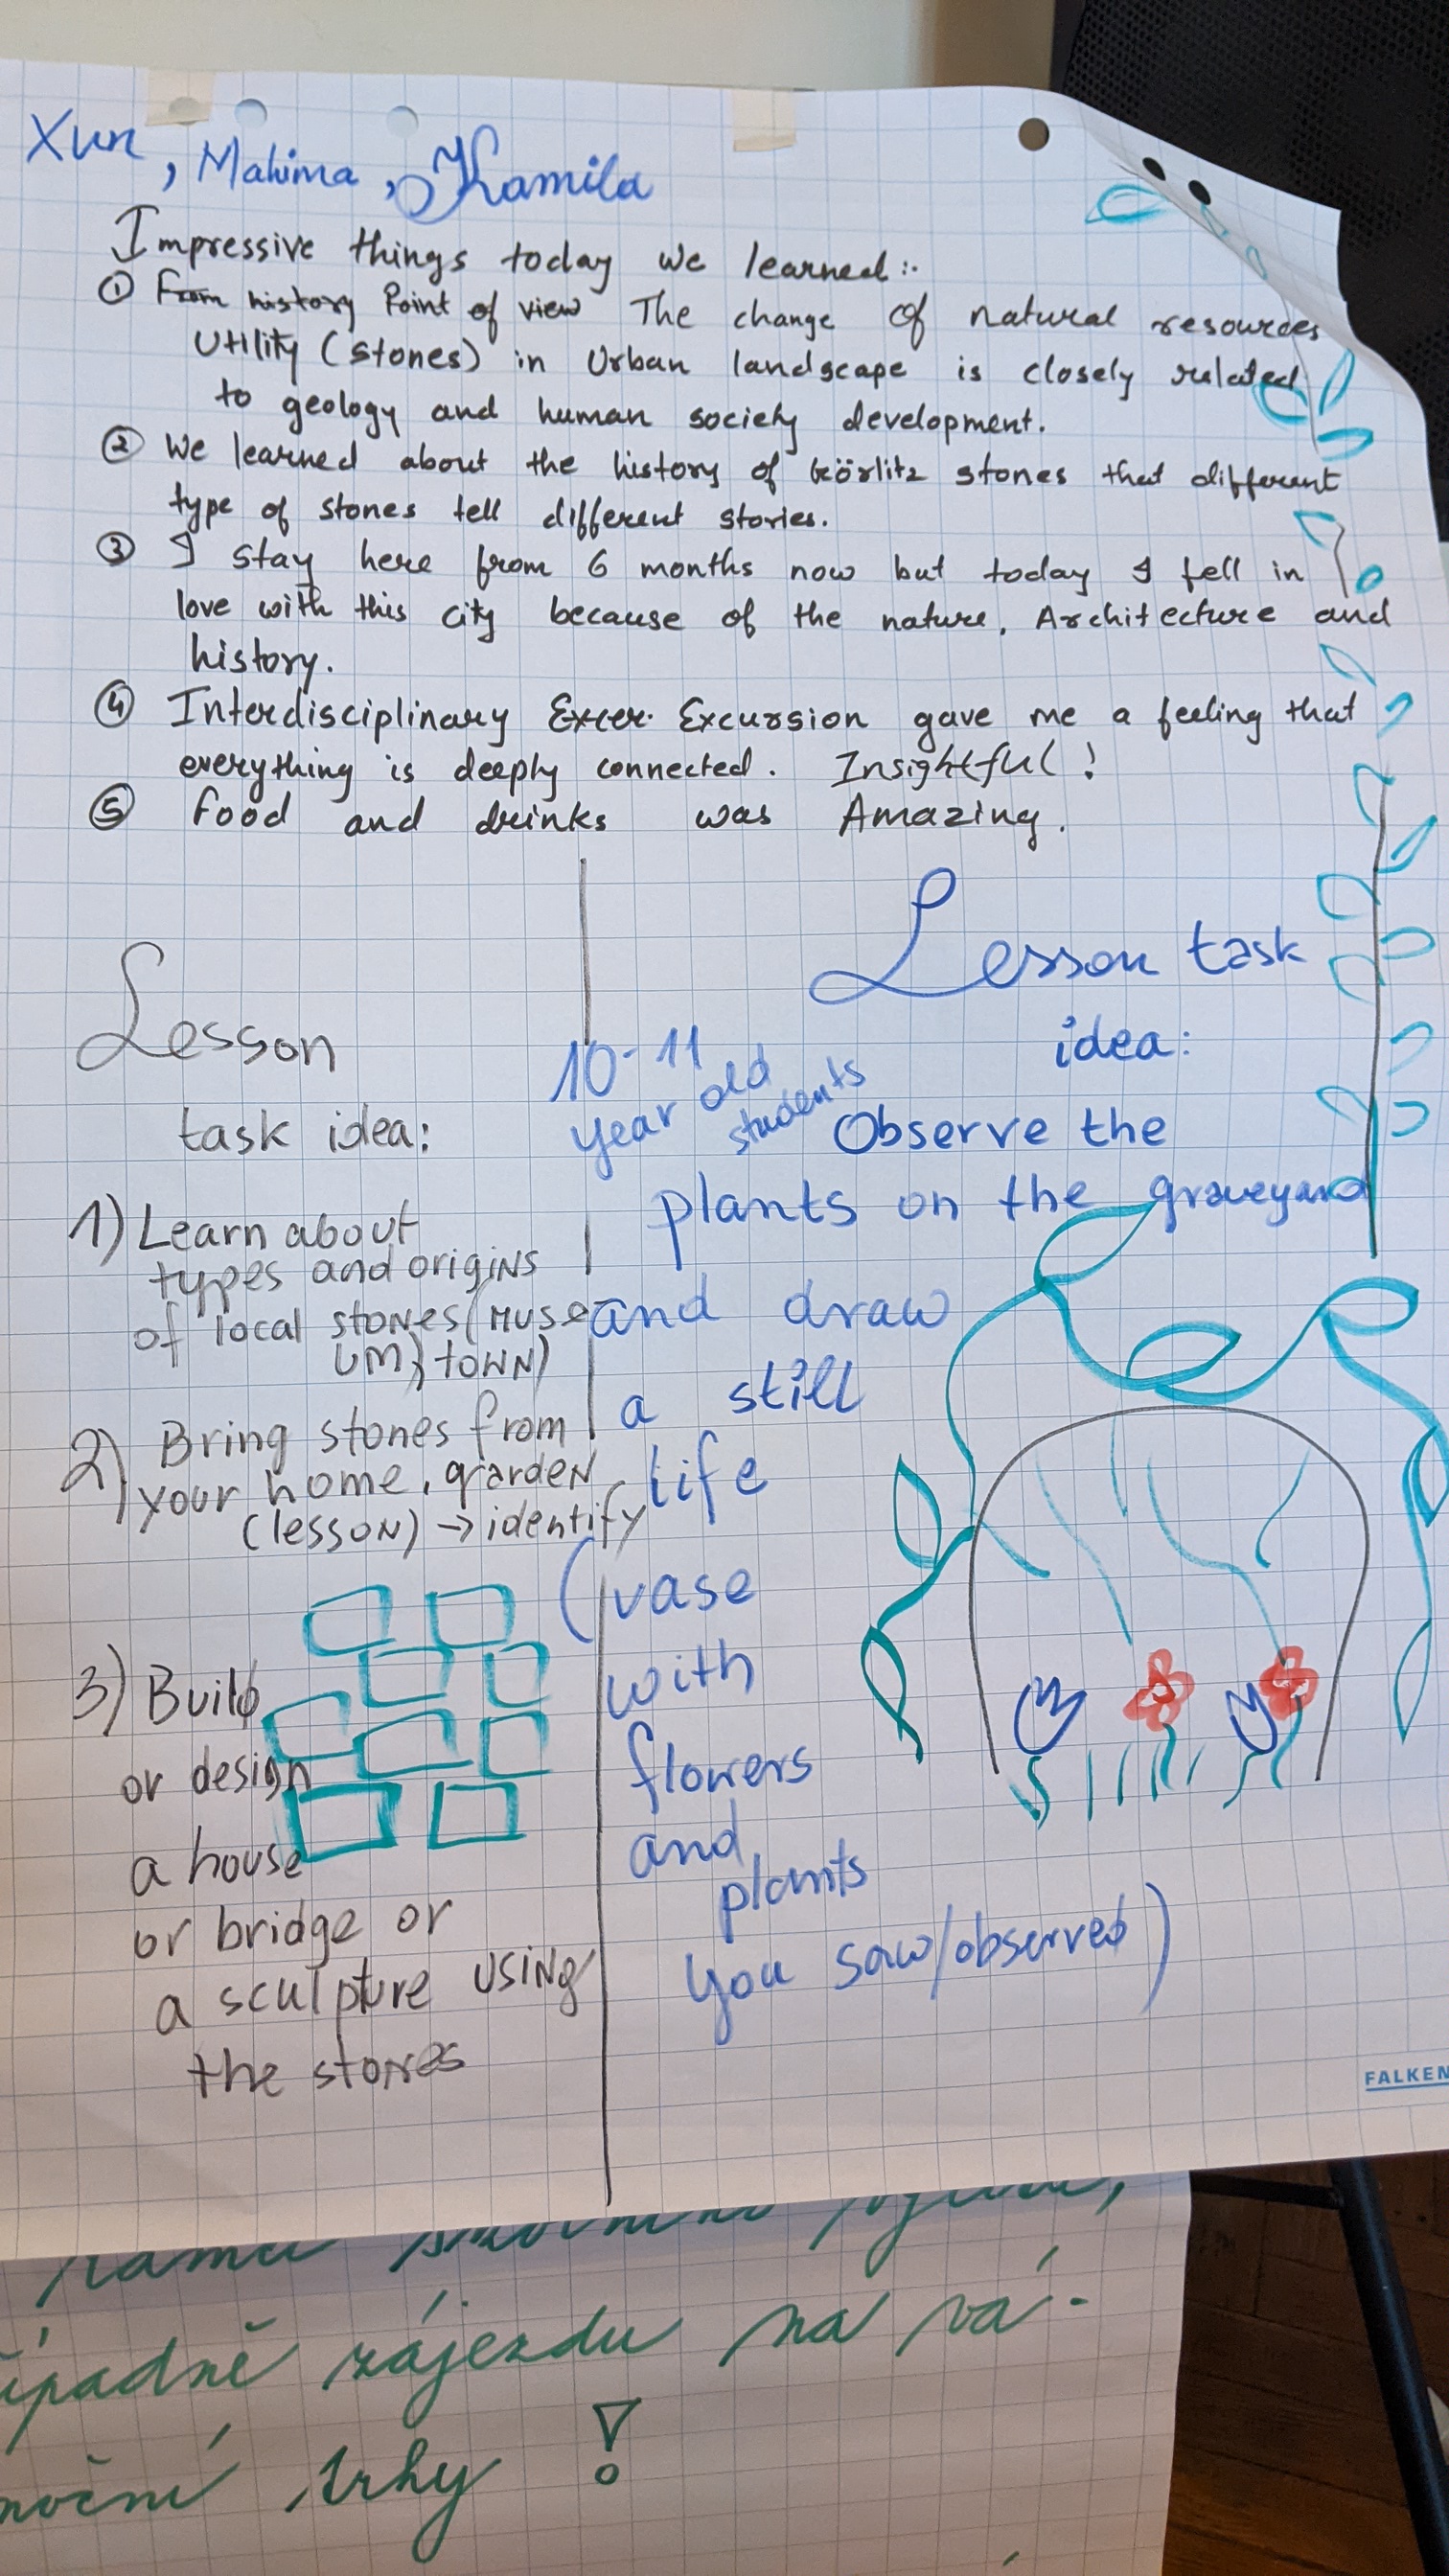 Xun, Mahima, Kamila
Impressive things today we learned:
① From history Point of view The change of natural resources
Utility (stones) in Urban landscape is closely related
to geology and human society development.
② We learned about the history of Görlitz stones that different
type of stones tell different stories.
③ I stay here from 6 months now but today I fell in
love with this city because of the nature, Architecture and
history.
④ Interdisciplinary Excer. Excursion gave me a feeling that
everything is deeply connected. Insightful!
⑤ Food and drinks was Amazing.
Lesson
task idea:
1) Learn about
types and origins
of local stones (MUSE
UM, TOWN)
2) Bring stones from
your home, garden
(lesson) → identify
3) Build
or design
a house
or bridge or
a sculpture using
the stones
10-11
year old
students
Lesson task
idea:
Observe the
plants on the graveyard
and draw
a still
life
(vase
with
flowers
and
plants
you saw/observed)
FALKEN
zájezdu na vá-
noční trhy!